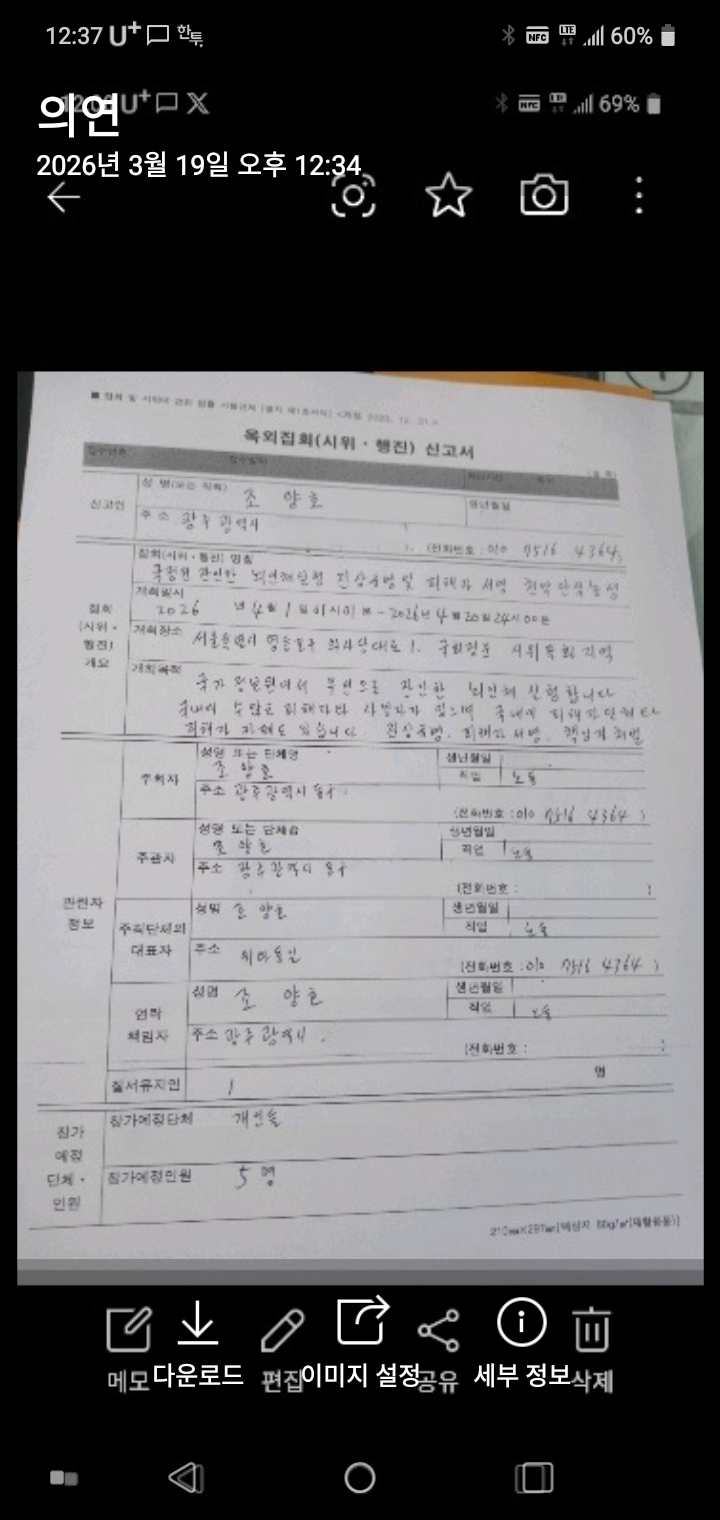 12:37 U+ 한투 LTE NFC 60%
U+ X NFC 69%
의연
2026년 3월 19일 오후 12:34
■ 집회 및 시위에 관한 법률 시행규칙 [별지 제1호서식]
옥외집회(시위·행진) 신고서
접수번호 접수일자
신고인
성 명(또는 직책) 조 양호
생년월일
주 소 광주광역시
(전화번호 : 010 7516 4364)
집회(시위·행진) 개요
집회(시위·행진) 명칭
국정원 관인한 뇌인체실험 진상규명 및 피해자 서명 단식농성
개최일시
2026 년 4월 1일 0시 0분 - 2026년 4월 20일 24시 00분
개최장소 서울특별시 영등포구 의사당대로 1. 국회정문 시위 지역
개최목적
국가정보원에서 관인한 뇌인체 실험합니다
국내에 수많은 피해자와 사망자가 있으며 국내에 피해자단체
피해자 있습니다. 진상규명. 피해자 서명. 책임자 처벌
관련자 정보
주최자
성명 또는 단체명
조 양호
생년월일
직업 노동
주소 광주광역시 동구
(전화번호 : 010 7516 4364 )
주관자
성명 또는 단체명
조 양호
생년월일
직업 노동
주소 광주광역시 동구
(전화번호 : )
주최단체의 대표자
성명 조 양호
생년월일
직업 노동
주소 위와동일
(전화번호 : 010 7516 4364 )
연락 책임자
성명 조 양호
생년월일
직업 노동
주소 광주광역시
(전화번호 : )
질서유지인 1 명
참가 예정 단체·인원
참가예정단체 개인들
참가예정인원 5 명
210㎜×297㎜[백상지 80g/㎡(재활용품)]
메모 다운로드 편집 이미지 설정 공유 세부 정보 삭제